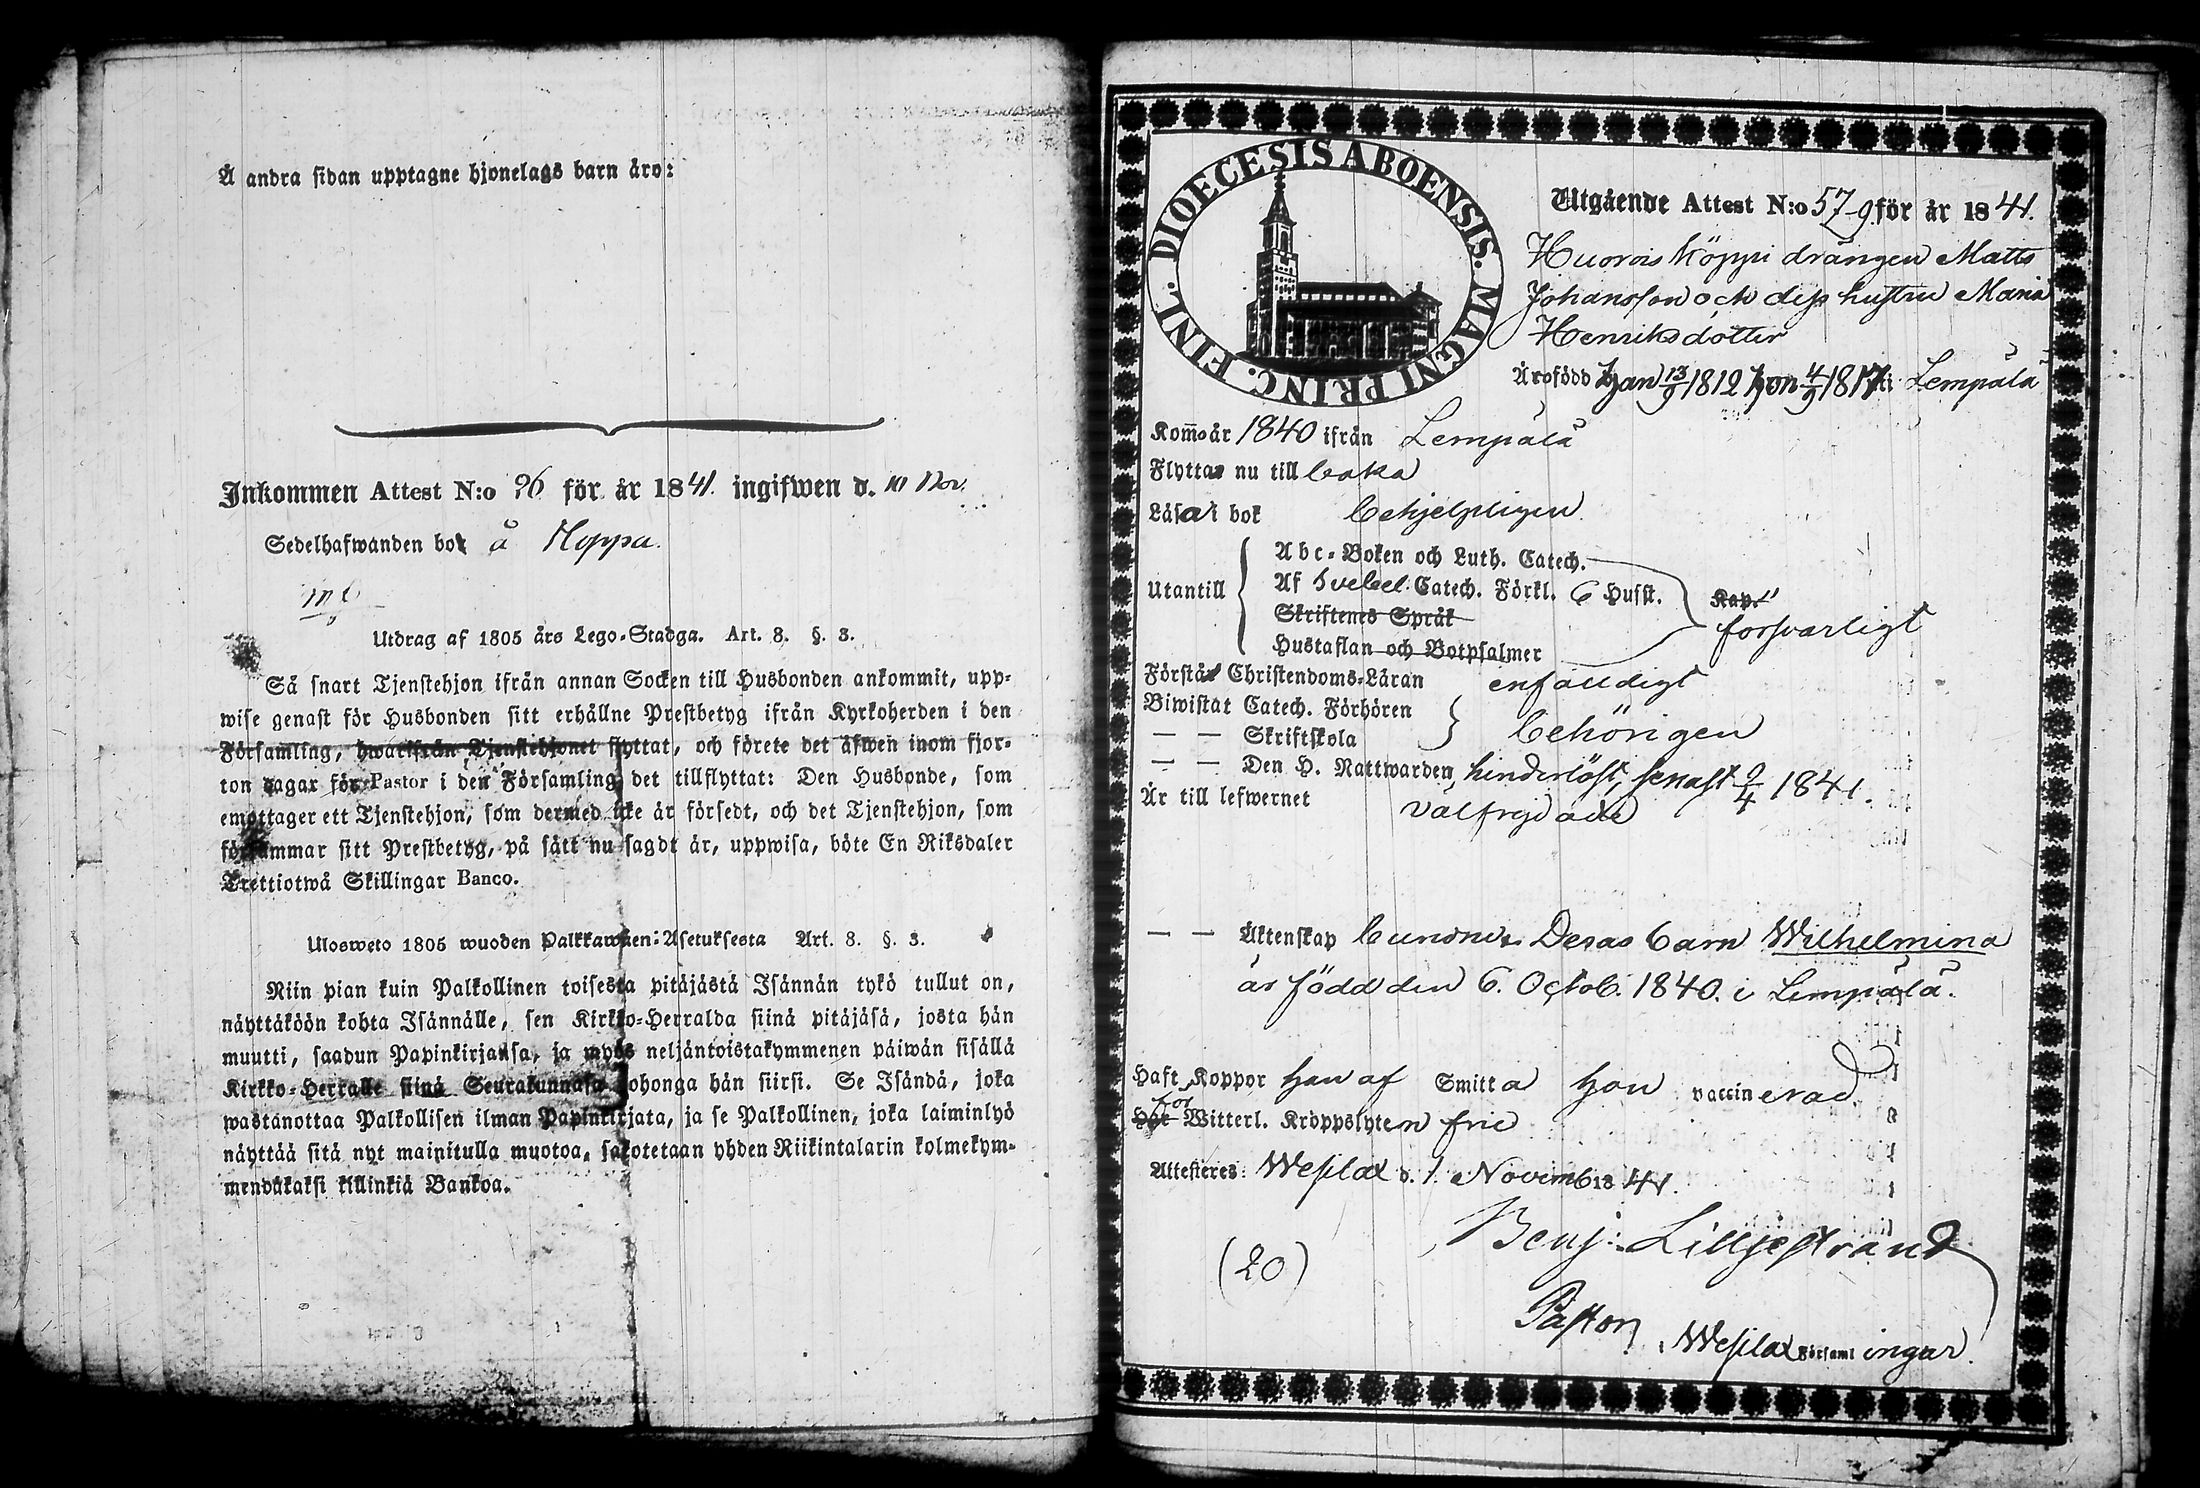 Å andra sidan upptagne hjonelags barn äro:
Inkommen Attest N:o 96 för år 1841. ingifwen d. 10 Nov.
Sedelhafwanden bor å Hoppa.
Utdrag af 1805 års Lego-Stadga. Art. 8. §. 3.
Så snart Tjenstehjon ifrån annan Socken till Husbonden ankommit, upp-
wise genast för Husbonden sitt erhållne Prestbetyg ifrån Kyrkoherden i den
Församling, hwarifrån Tjenstehjonet flyttat, och förete det äfwen inom fjor-
ton dagar för Pastor i den Församling det tillflyttat: Den Husbonde, som
emottager ett Tjenstehjon, som dermed icke är försedt, och det Tjenstehjon, som
försummar sitt Prestbetyg, på sätt nu sagdt är, uppwisa, böte En Riksdaler
Trettiotwå Skillingar Banco.
Ulosweto 1805 wuoden Palkkawäen-Asetuksesta Art. 8. §. 3.
Niin pian kuin Palkollinen toisesta pitäjästä Isännän tykö tullut on,
näyttäköön kohta Isännälle, sen Kirkko-Herralda siinä pitäjäsä, josta hän
muutti, saadun Papinkirjansa, ja myös neljäntoistakymmenen päiwän sisällä
Kirkko-Herralle siinä Seurakunnasa johonga hän siirsi. Se Isändä, joka
wastanottaa Palkollisen ilman Papinkirjata, ja se Palkollinen, joka laiminlyö
näyttää sitä nyt mainitulla muotoa, sakotetaan yhden Riikintalarin kolmekym-
mendäkaksi killinkiä Bankoa.
DIOECESIS ABOENSIS. MAGNI PRINC. FINL.
Utgående Attest N:o 57-9 för år 1841.
Huovis Köppi drängen Matts
Johansson och dess hustru Maria
Henriksdotter
Äro född han 13/9 1812 hon 4/9 1817 i Lempälä
Kommo år 1840 ifrån Lempälä
Flytta nu till
Läsa i bok behjelpligen
Utantill
Abc-Boken och Luth. Catech.
Af Svebel. Catech. Förkl. 6 Husst. Kap.
Skriftenes Språk försvarligt
Hustaflan och Botpsalmer
Förstå Christendoms-Läran enfaldigt
Biwistat Catech. Förhören
— — Skriftskola behörigen
— — Den H. Nattwarden, hinderlöst, senast 9/4 1841.
Är till lefwernet välfrejdade
— — Äktenskap bundne. Deras barn Wilhelmina
är född den 6. Octob. 1840. i Lempälä.
Haft Koppor han af Smitta hon vaccinerad
för
Har Witterl. Kroppslyten frie
Attesteres: Wesilax d. 1. Novemb 1841.
Benj: Lilljestrand
(20)
Pastor i Wesilax Församlingar.